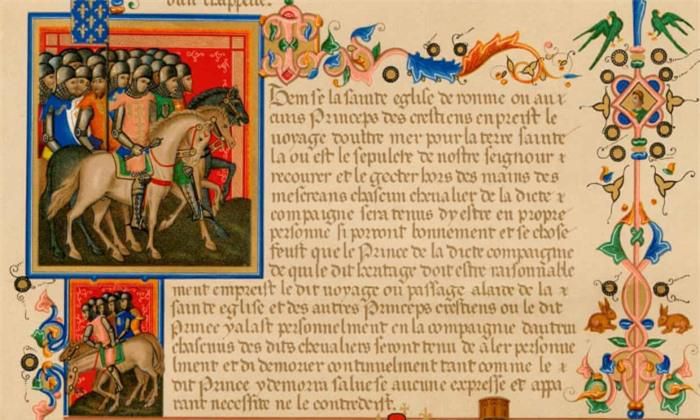 dem se la sainte eglise de romme ou aux
autres Princeps des crestiens enpreist le
voyage doultre mer pour la terre sainte
la ou est le sepulcre de nostre seignour &
recourer et le gecter hors des mains des
mescreans chascun chevalier de la dicte &
compaigne sera tenus dy estre en propre
personne si porront bonnement et se chose
feust que le Prince de la dicte compaignie
de qui le dit heritage doit estre raisonnable
ment empreist le dit voyage ou passage alaide de la &
sainte eglise et des autres Princeps crestiens ou le dit
Prince yalast personnelment en la compaignie dautrui
chascuns des dits chevaliers seront tenu de aler personne
lment et di demorer continuelment tant comme le &
dit Prince y demorra salue se aucune expresse et appa
rant necessite ne le contredeist.